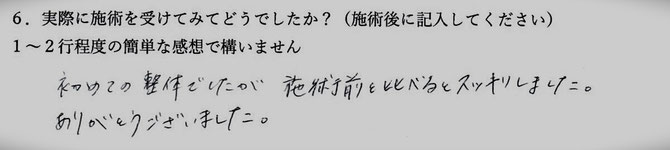 6．実際に施術を受けてみてどうでしたか？（施術後に記入してください）
1～2行程度の簡単な感想で構いません
初めての整体でしたが 施術前と比べるとスッキリしました。
ありがとうございました。